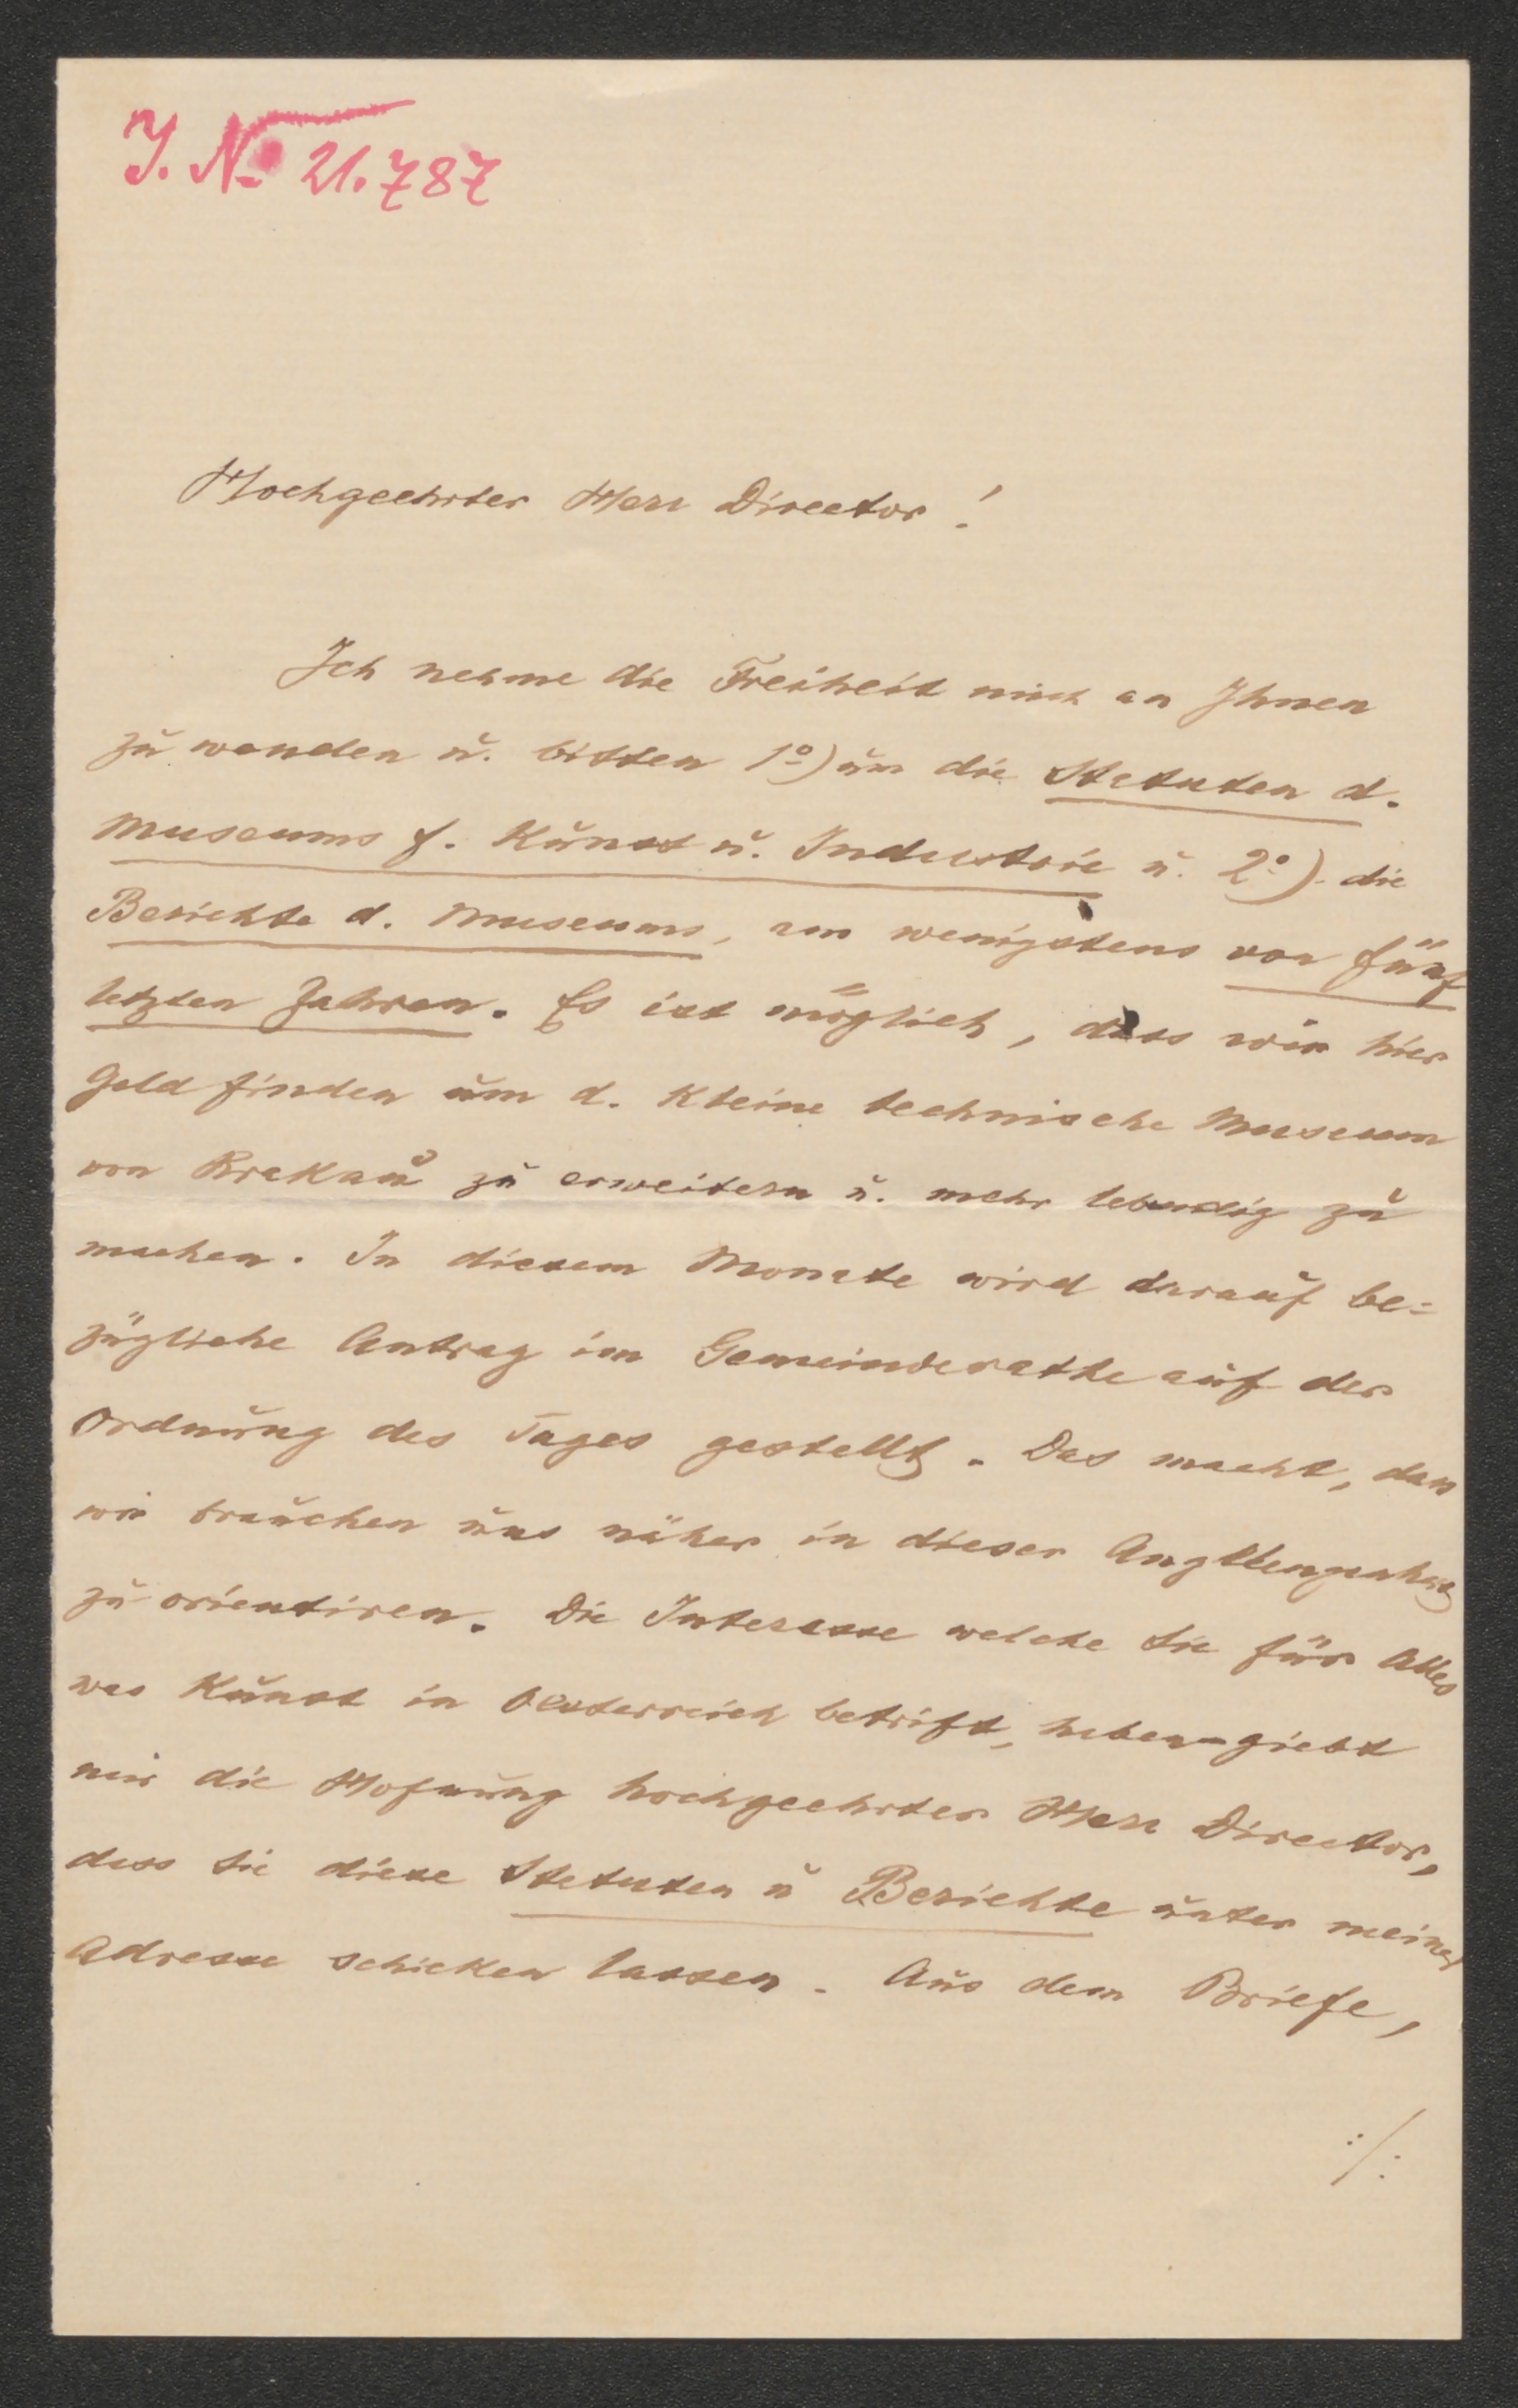 J. No 21.787
Hochgeehrter Herr Director!
Ich nehme die Freiheit mich an Ihnen
zu wenden u. bitten 1o) um die Statuten d.
Museums f. Kunst u. Industrie u. 2o) die
Berichte d. Museums, am wenigstens von fünf
letzten Jahren. Es ist möglich, dass wir hier
Geld finden um d. kleine technische Museum
von Krakau zu erweitern u. mehr lebendig zu
machen. In diesem Monate wird darauf be=
zügliche Antrag im Gemeinderathe auf der
Ordnung des Tages gestellt. Das macht, dass
wir brauchen uns näher in dieser
zu orientiren. Die Interesse welche Sie für Alles
was Kunst in Oesterreich betrift, haben - giebt
mir die Hofnung hochgeehrter Herr Director,
dass Sie diese Statuten u Berichte unter meiner
Adresse schicken lassen. Aus dem Briefe,
:/: